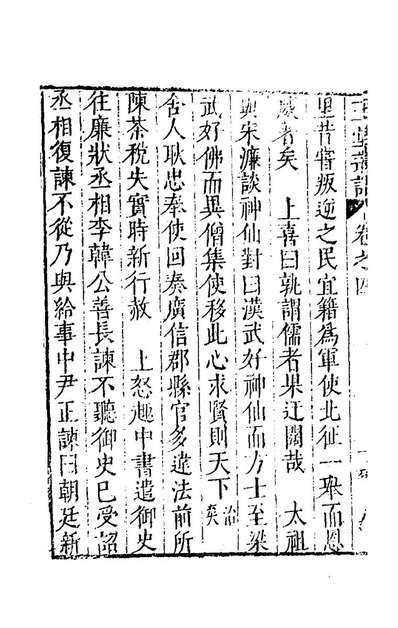 玉堂叢語 卷之四
里昔嘗叛逆之民宜籍為軍使北征一舉而恩
威著矣 上喜曰孰謂儒者果迂闊哉 太祖
與宋濂談神仙對曰漢武好神仙而方士至梁
武好佛而異僧集使移此心求賢則天下治矣
舍人耿忠奉使回奏廣信郡縣官多違法前所
陳茶稅失實時新行赦 上怒趣中書遣御史
往廉狀丞相李韓公善長諫不聽御史已受詔
丞相復諫不從乃與給事中尹正諫曰朝廷新